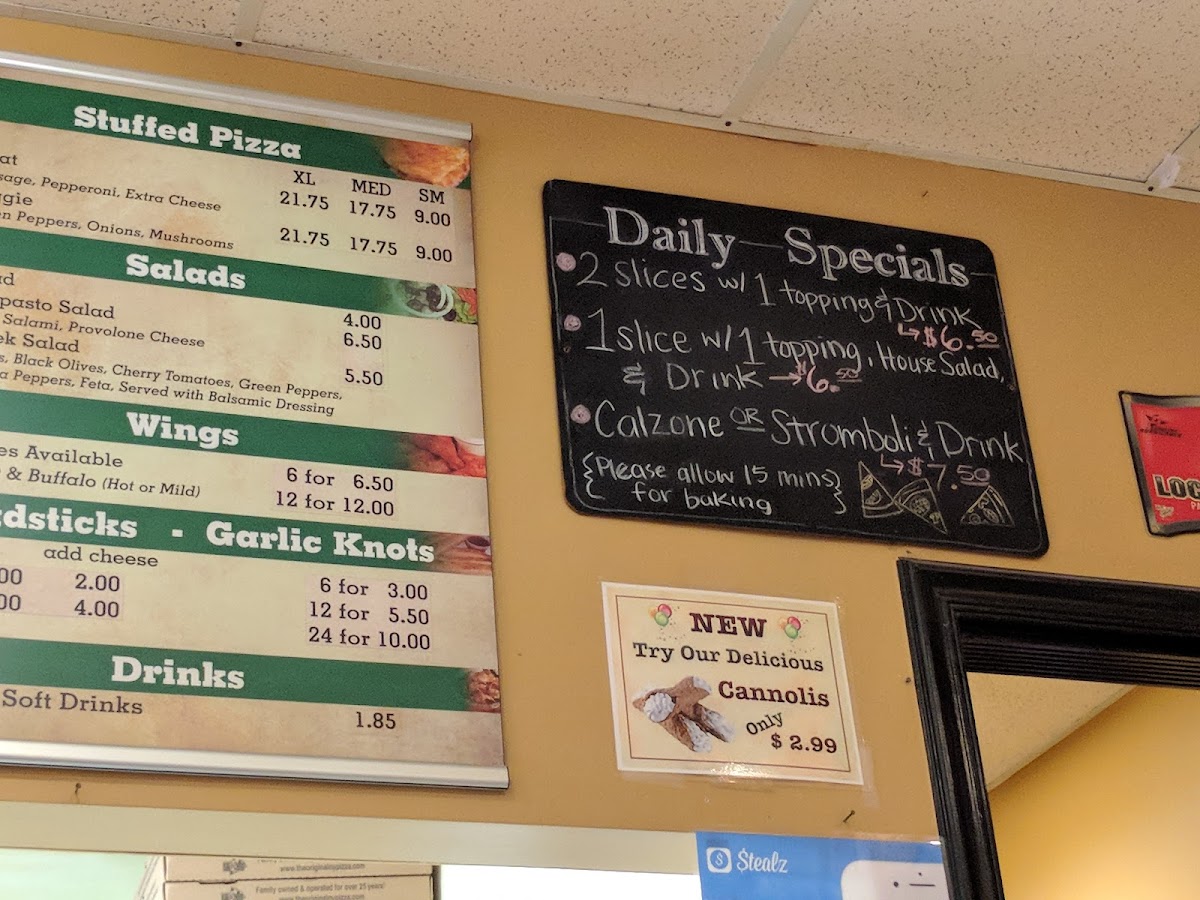 Stuffed Pizza
XL MED SM
at 21.75 17.75 9.00
sage, Pepperoni, Extra Cheese
ggie 21.75 17.75 9.00
en Peppers, Onions, Mushrooms
Salads
ad 4.00
pasto Salad 6.50
Salami, Provolone Cheese
ek Salad 5.50
s, Black Olives, Cherry Tomatoes, Green Peppers,
a Peppers, Feta, Served with Balsamic Dressing
Wings
es Available 6 for 6.50
& Buffalo (Hot or Mild) 12 for 12.00
adsticks - Garlic Knots
add cheese
00 2.00 6 for 3.00
00 4.00 12 for 5.50
24 for 10.00
Drinks
Soft Drinks 1.85
Daily Specials
2 slices w/ 1 topping & Drink
↳$6.50
1 slice w/ 1 topping, House Salad,
& Drink →$6.50
Calzone OR Stromboli & Drink
↳$7.50
{Please allow 15 mins}
{for baking}
NEW
Try Our Delicious
Cannolis
only
$ 2.99
LOC
$tealz
www.theoriginalnypizza.com
Family owned & operated for over 25 years!